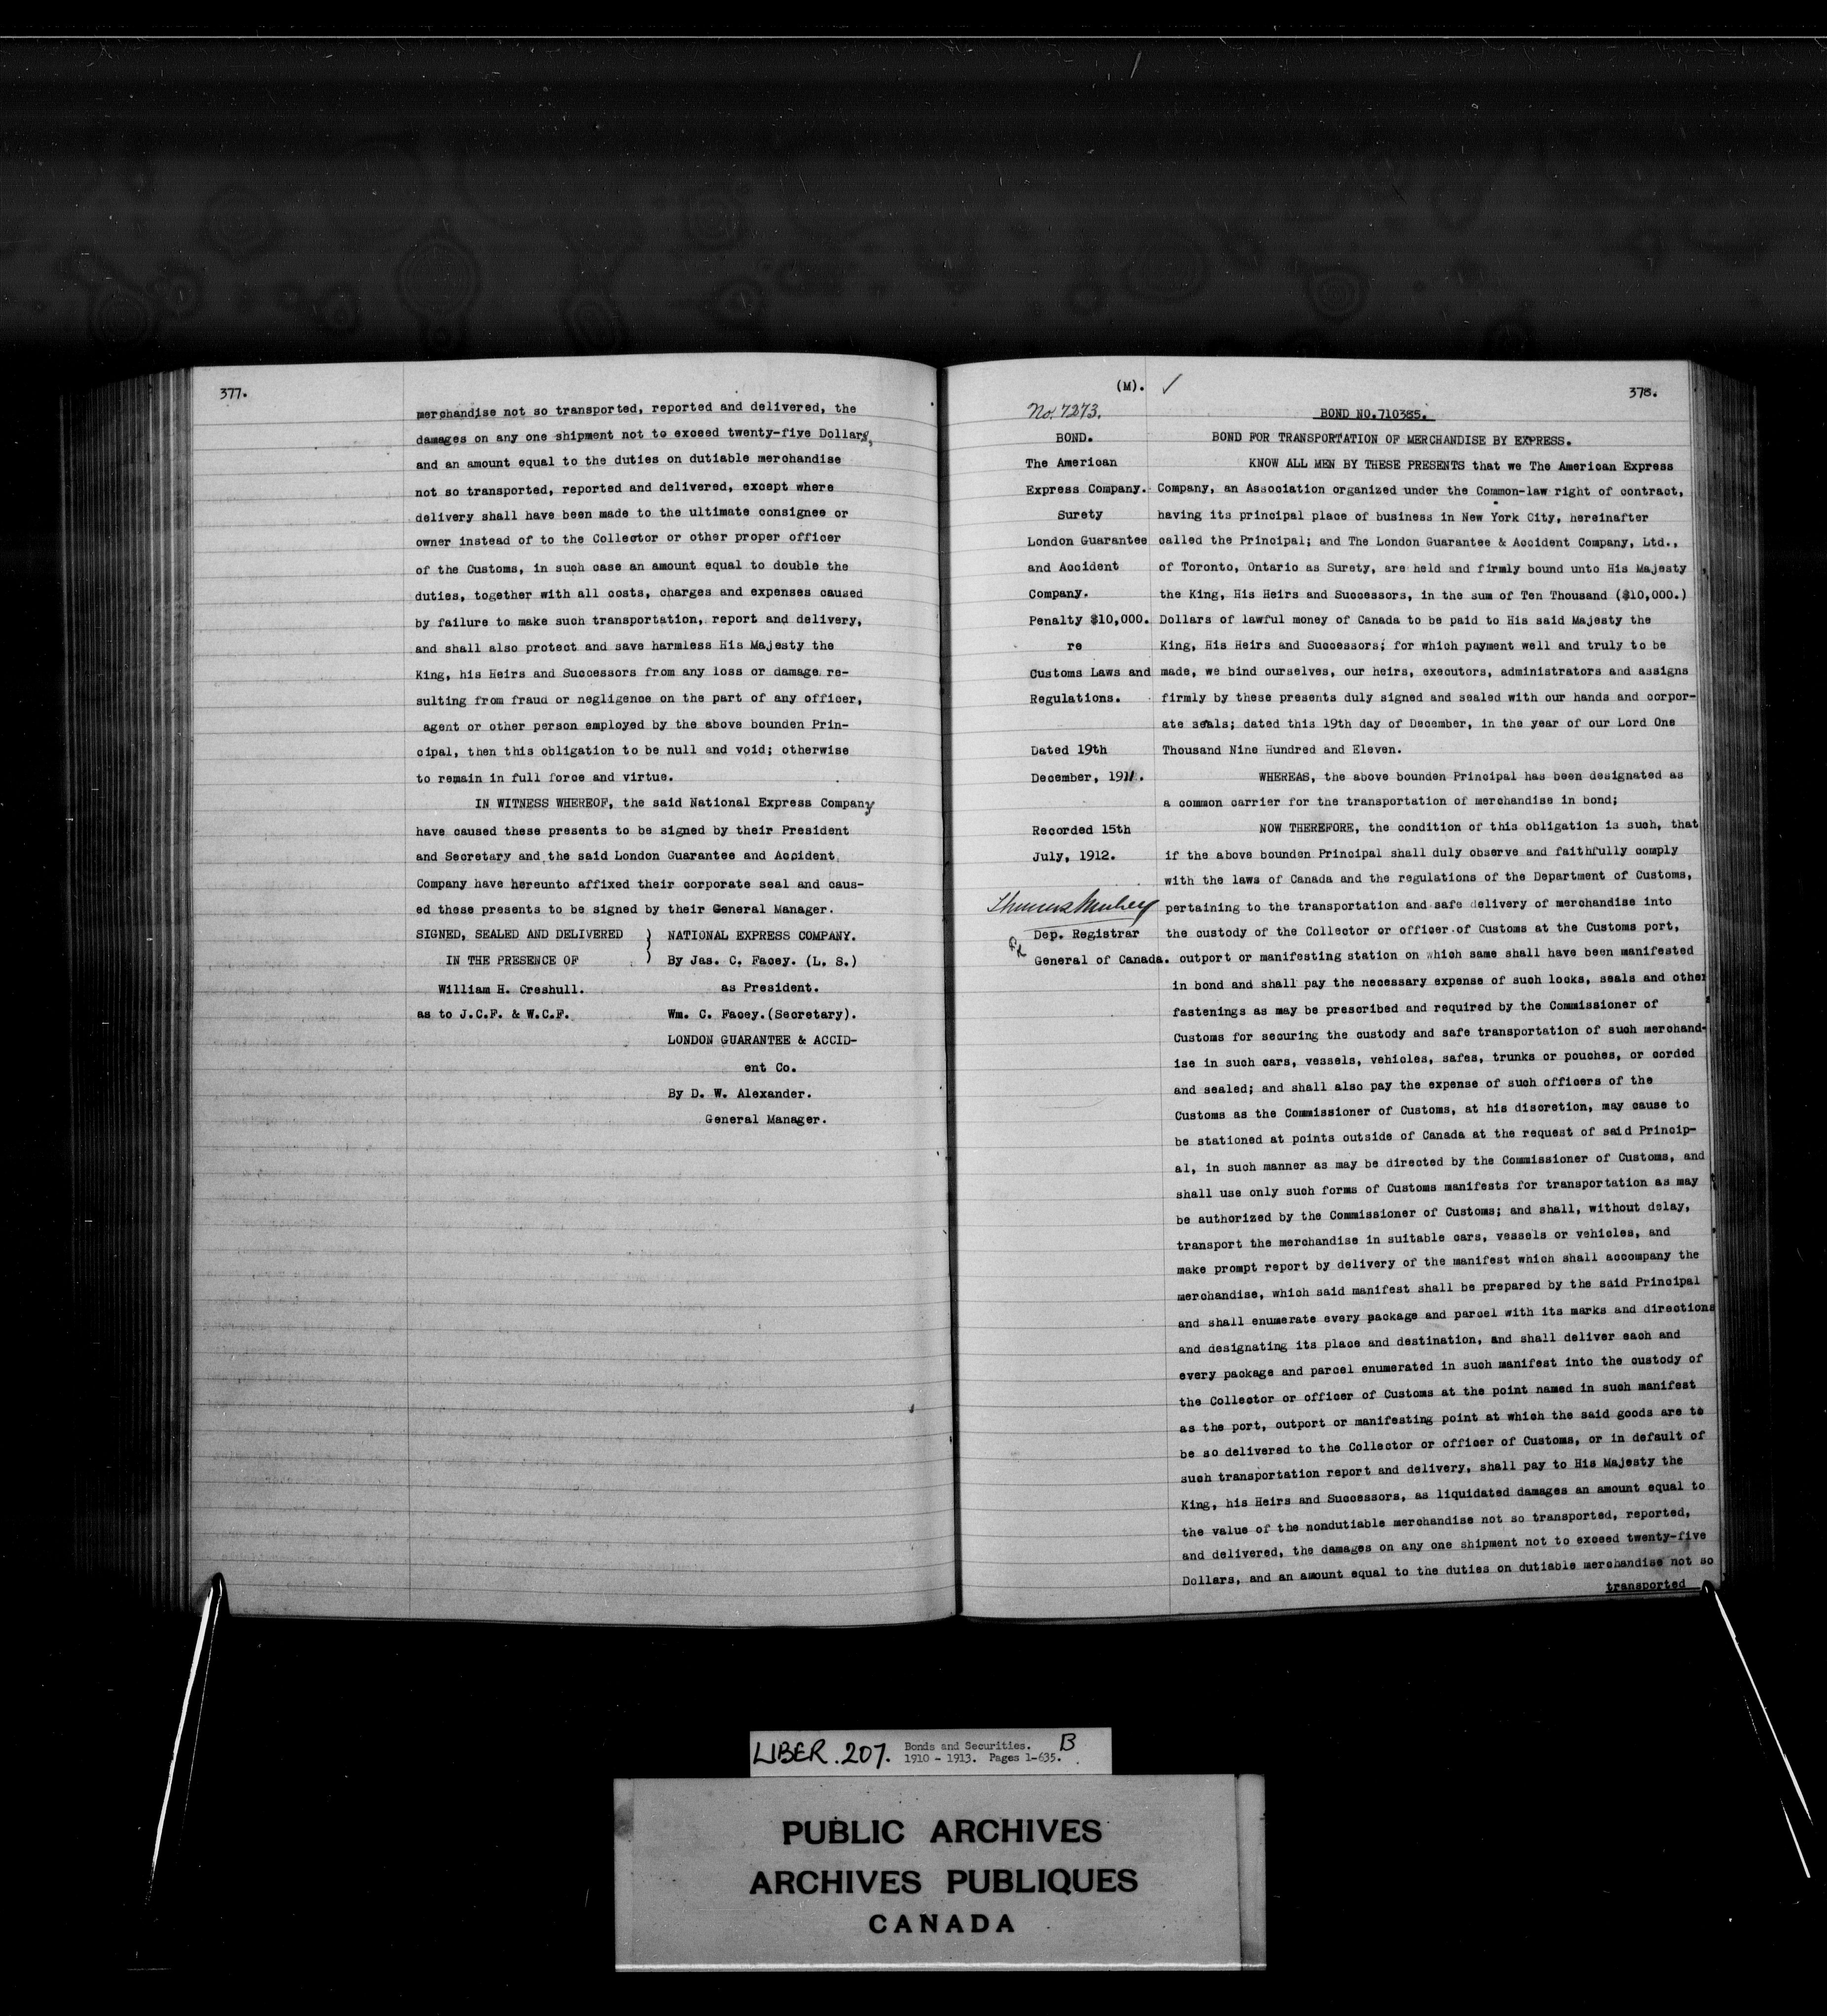 377.
merchandise not so transported, reported and delivered, the
damages on any one shipment not to exceed twenty-five Dollars,
and an amount equal to the duties on dutiable merchandise
not so transported, reported and delivered, except where
delivery shall have been made to the ultimate consignee or
owner instead of to the Collector or other proper officer
of the Customs, in such case an amount equal to double the
duties, together with all costs, charges and expenses caused
by failure to make such transportation, report and delivery,
and shall also protect and save harmless His Majesty the
King, his Heirs and Successors from any loss or damage re-
sulting from fraud or negligence on the part of any officer,
agent or other person employed by the above bounden Prin-
cipal, then this obligation to be null and void; otherwise
to remain in full force and virtue.
IN WITNESS WHEREOF, the said National Express Company
have caused these presents to be signed by their President
and Secretary and the said London Guarantee and Accident
Company have hereunto affixed their corporate seal and caus-
ed these presents to be signed by their General Manager.
SIGNED, SEALED AND DELIVERED } NATIONAL EXPRESS COMPANY.
IN THE PRESENCE OF ) By Jas. C. Facey. (L. S.)
William H. Creshull. as President.
as to J.C.F. & W.C.F. Wm. C. Facey.(Secretary).
LONDON GUARANTEE & ACCID-
ent Co.
By D. W. Alexander.
General Manager.
(M). ✓ 378.
No. 7273.
BOND.
The American
Express Company.
Surety
London Guarantee
and Accident
Company.
Penalty $10,000.
re
Customs Laws and
Regulations.
Dated 19th
December, 1911.
Recorded 15th
July, 1912.
Dep. Registrar
General of Canada.
BOND NO.710385.
BOND FOR TRANSPORTATION OF MERCHANDISE BY EXPRESS.
KNOW ALL MEN BY THESE PRESENTS that we The American Express
Company, an Association organized under the Common-law right of contract,
having its principal place of business in New York City, hereinafter
called the Principal; and The London Guarantee & Accident Company, Ltd.,
of Toronto, Ontario as Surety, are held and firmly bound unto His Majesty
the King, His Heirs and Successors, in the sum of Ten Thousand ($10,000.)
Dollars of lawful money of Canada to be paid to His said Majesty the
King, His Heirs and Successors; for which payment well and truly to be
made, we bind ourselves, our heirs, executors, administrators and assigns
firmly by these presents duly signed and sealed with our hands and corpor-
ate seals; dated this 19th day of December, in the year of our Lord One
Thousand Nine Hundred and Eleven.
WHEREAS, the above bounden Principal has been designated as
a common carrier for the transportation of merchandise in bond;
NOW THEREFORE, the condition of this obligation is such, that
if the above bounden Principal shall duly observe and faithfully comply
with the laws of Canada and the regulations of the Department of Customs,
pertaining to the transportation and safe delivery of merchandise into
the custody of the Collector or officer of Customs at the Customs port,
outport or manifesting station on which same shall have been manifested
in bond and shall pay the necessary expense of such locks, seals and other
fastenings as may be prescribed and required by the Commissioner of
Customs for securing the custody and safe transportation of such merchand-
ise in such cars, vessels, vehicles, safes, trunks or pouches, or corded
and sealed; and shall also pay the expense of such officers of the
Customs as the Commissioner of Customs, at his discretion, may cause to
be stationed at points outside of Canada at the request of said Princip-
al, in such manner as may be directed by the Commissioner of Customs, and
shall use only such forms of Customs manifests for transportation as may
be authorized by the Commissioner of Customs; and shall, without delay,
transport the merchandise in suitable cars, vessels or vehicles, and
make prompt report by delivery of the manifest which shall accompany the
merchandise, which said manifest shall be prepared by the said Principal
and shall enumerate every package and parcel with its marks and directions
and designating its place and destination, and shall deliver each and
every package and parcel enumerated in such manifest into the custody of
the Collector or officer of Customs at the point named in such manifest
as the port, outport or manifesting point at which the said goods are to
be so delivered to the Collector or officer of Customs, or in default of
such transportation report and delivery, shall pay to His Majesty the
King, his Heirs and Successors, as liquidated damages an amount equal to
the value of the nondutiable merchandise not so transported, reported,
and delivered, the damages on any one shipment not to exceed twenty-five
Dollars, and an amount equal to the duties on dutiable merchandise not so
transported
LIBER. 207. Bonds and Securities. B
1910 - 1913. Pages 1-635.
PUBLIC ARCHIVES
ARCHIVES PUBLIQUES
CANADA